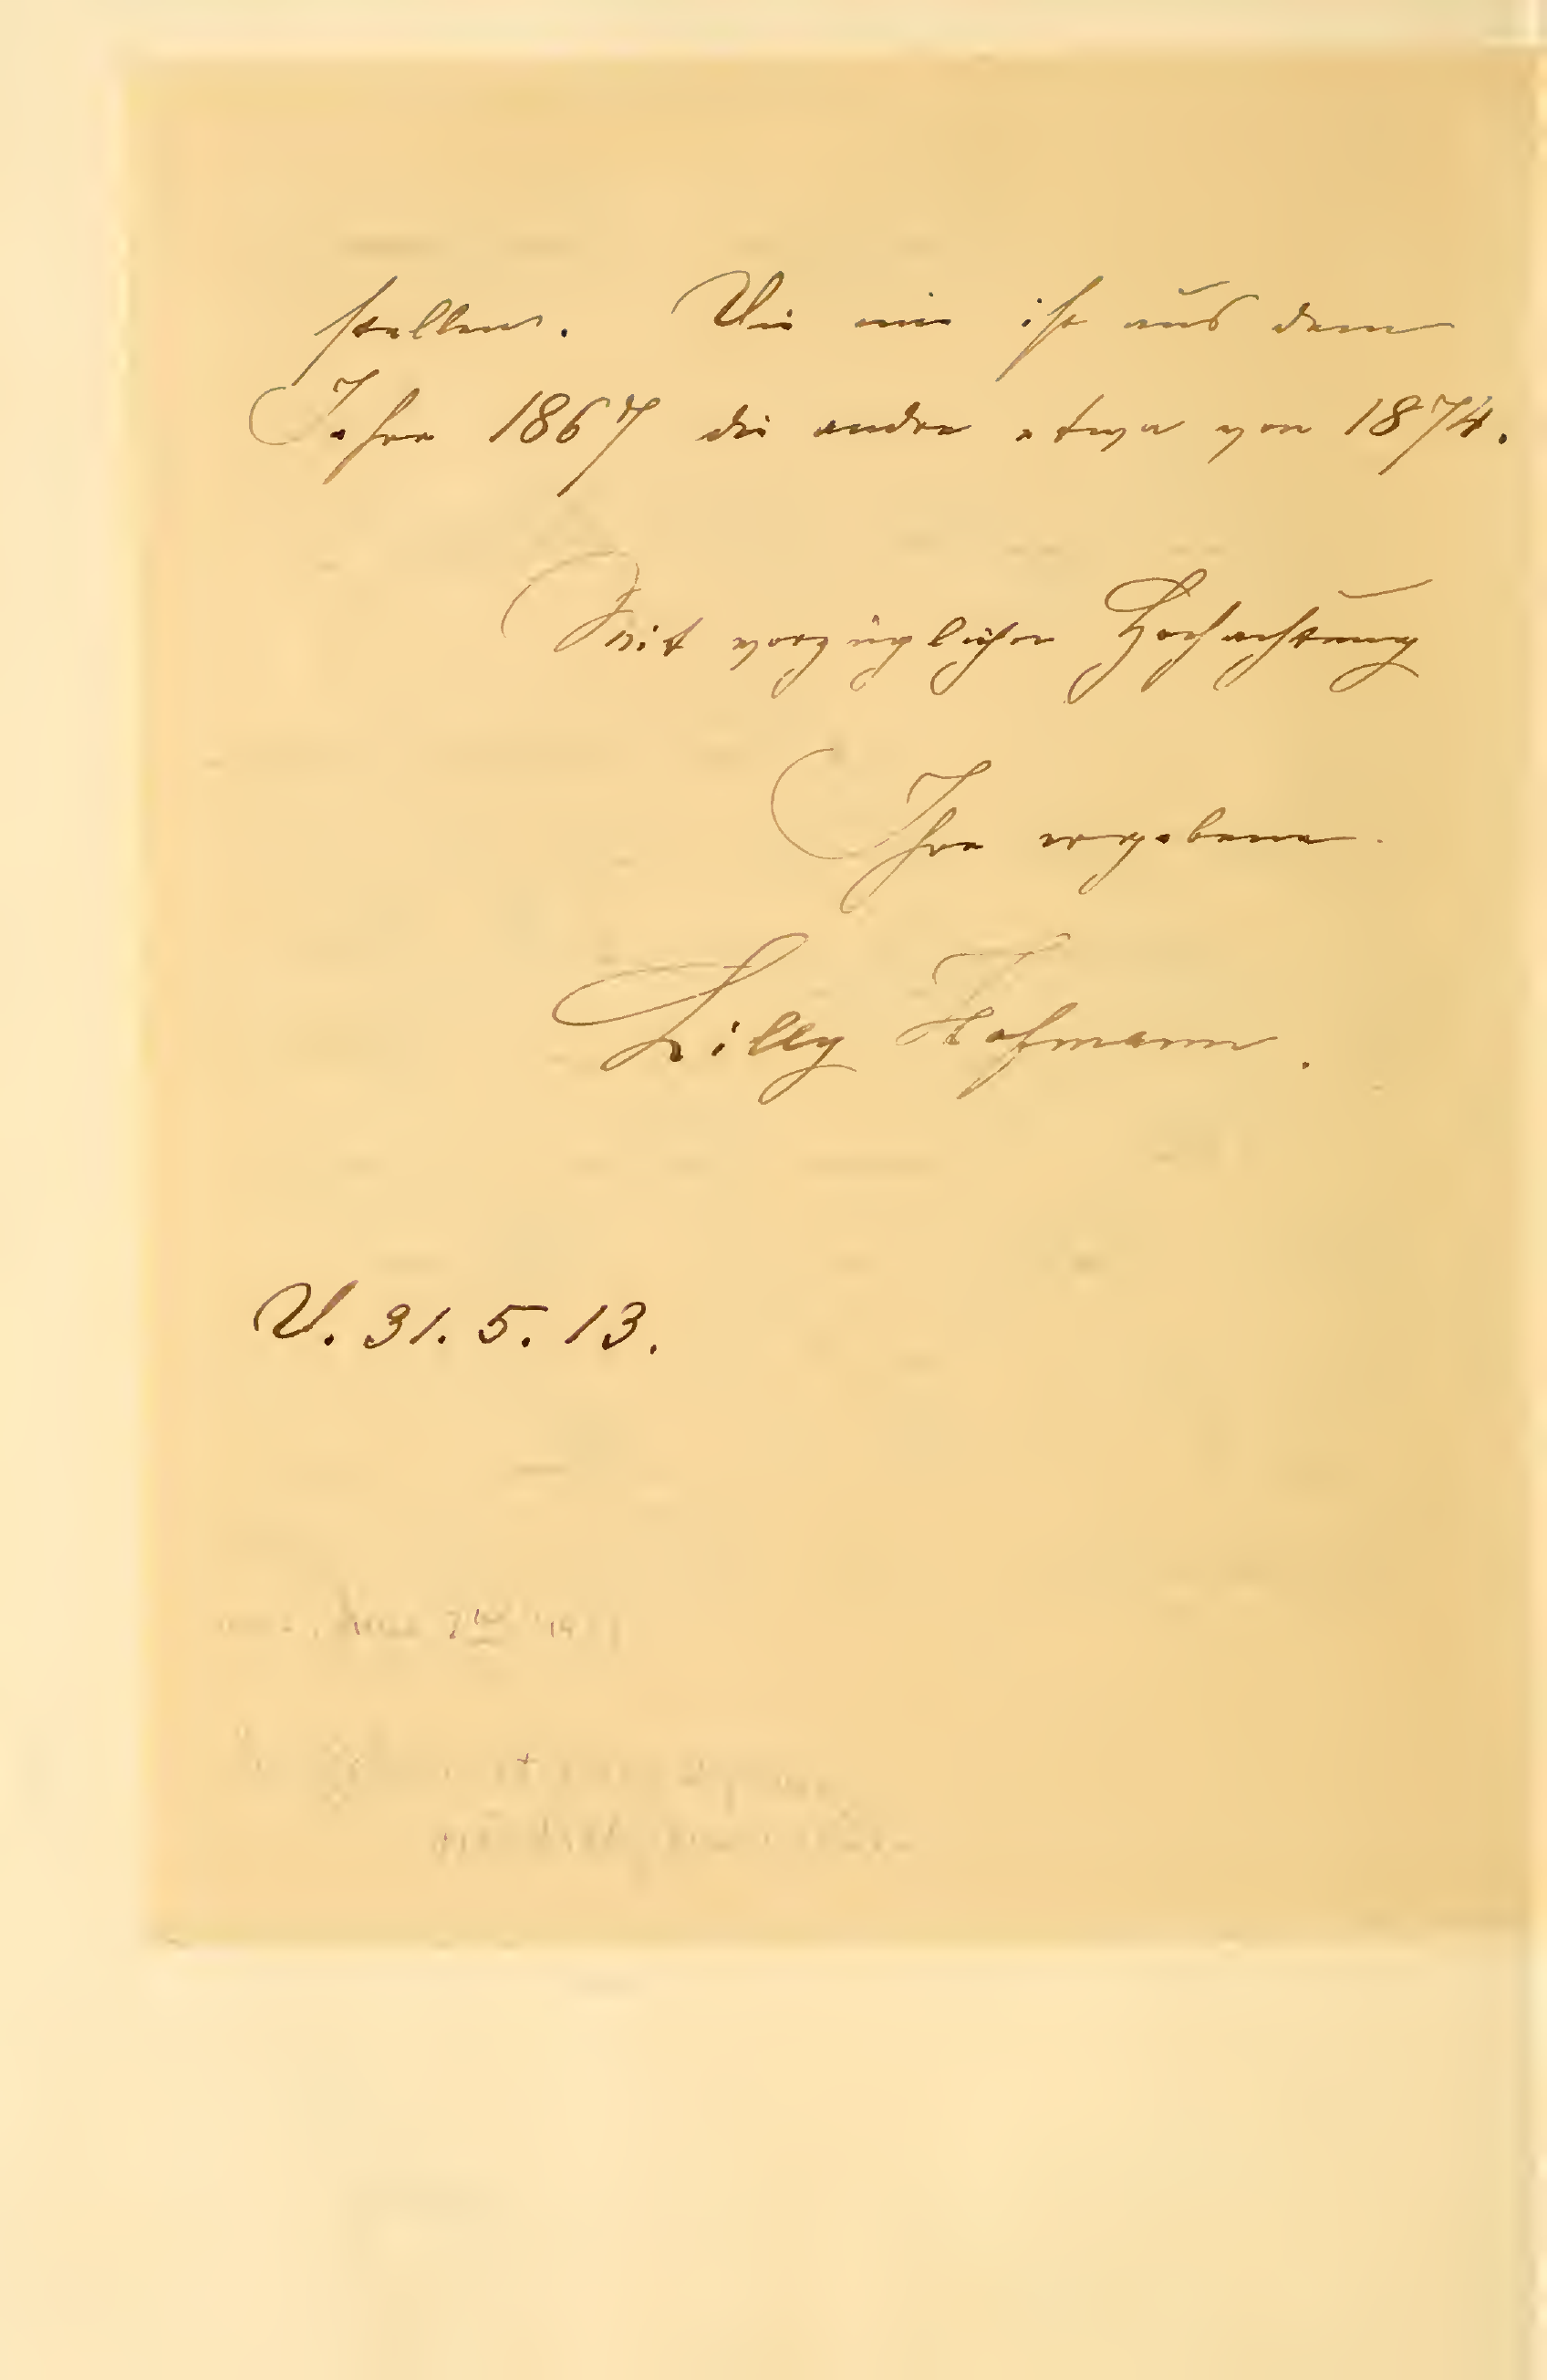 stellen. Die eine ist aus dem
Jahre 1867 die andre etwa von 1874.
Mit vorzüglicher Hochachtung
Ihre ergebene
Lilly Hofmann.
D. 31. 5. 13.